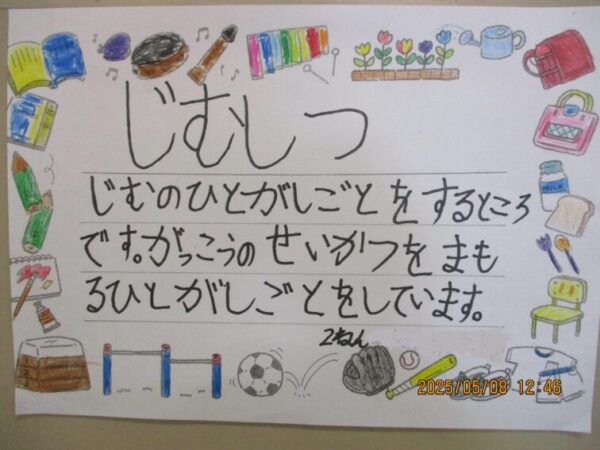 じむしつ
じむのひとがしごとをするところ
です。がっこうのせいかつをまも
るひとがしごとをしています。
2ねん
MILK
2025/05/08 12:46